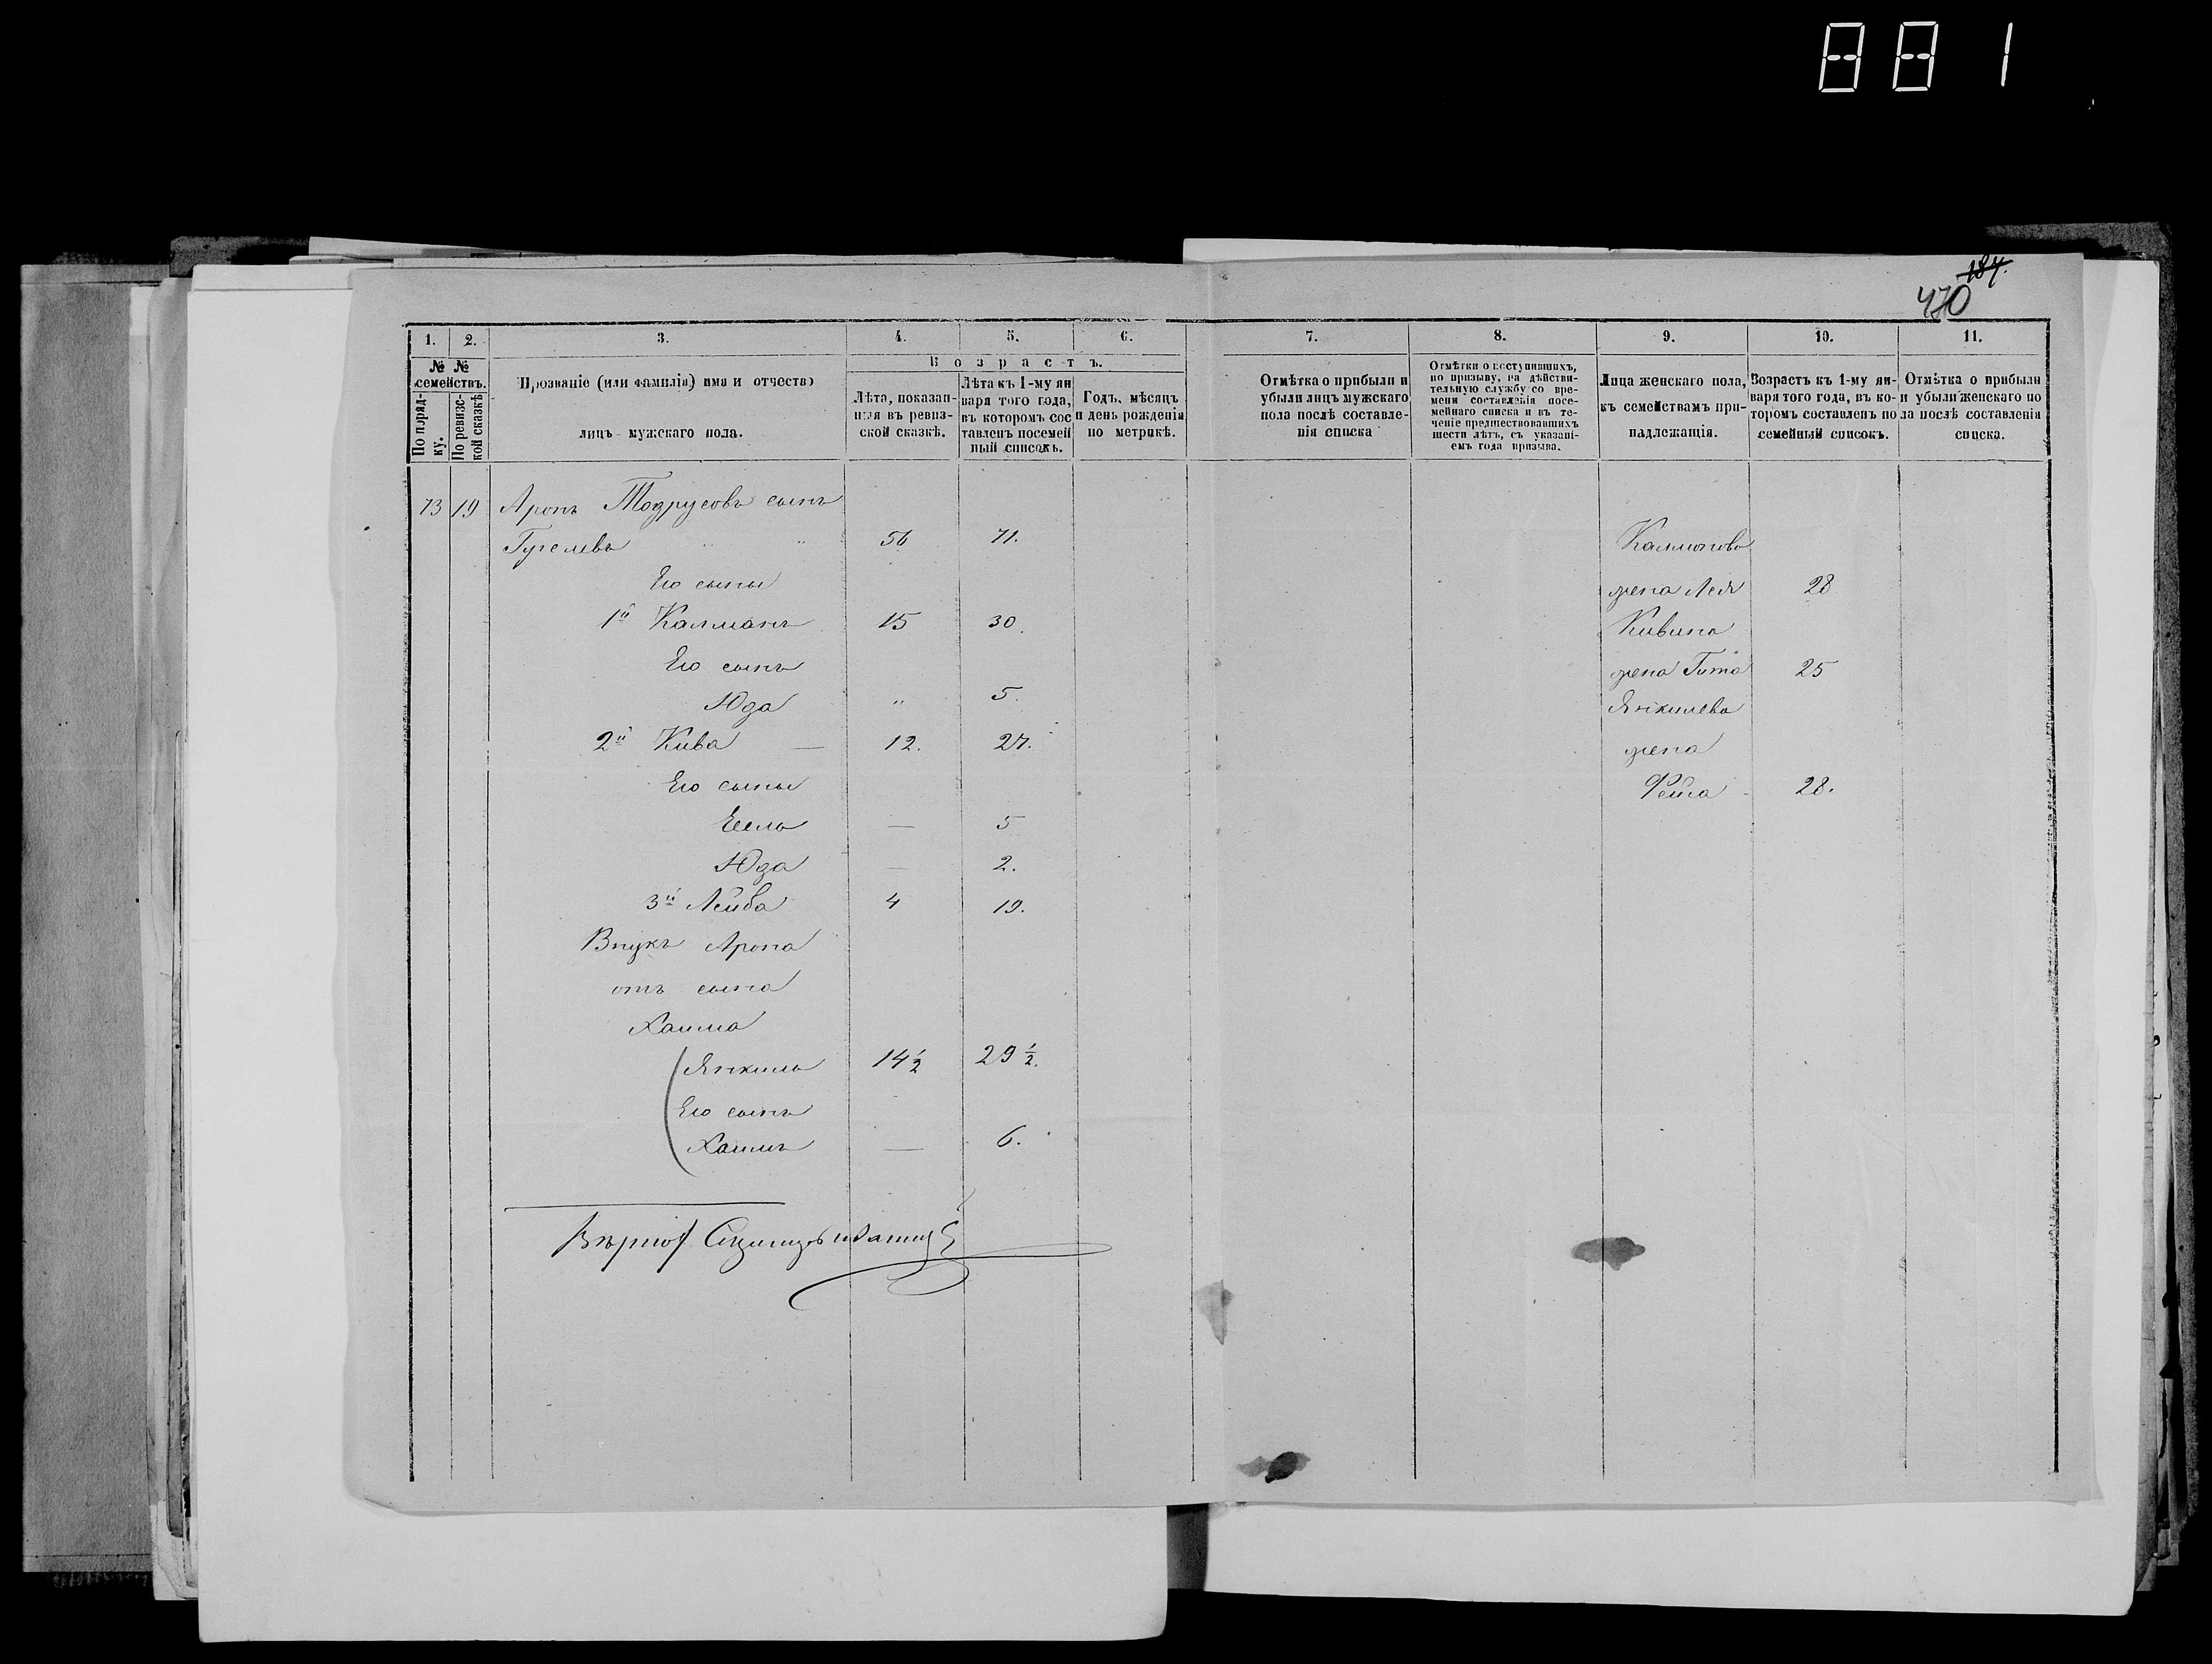 881
184.
470
1.
2.
3.
4.
5.
6.
7.
8.
9.
10.
11.
№ №
семействъ.
По поряд-
ку.
По ревизс-
кой сказкѣ
Прозваніе (или фамилія) имя и отчество
лицъ мужскаго пола.
Возрастъ.
Лѣта, показан-
ныя въ ревиз-
ской сказкѣ.
Лѣта къ 1-му ян
варя того года,
въ которомъ сос
тавленъ посемей
ный списокъ.
Годъ, мѣсяцъ
и день рожденія
по метрикѣ.
Отмѣтка о прибыли и
убыли лицъ мужскаго
пола послѣ составле-
нія списка
Отмѣтки о поступившихъ,
по призыву, на дѣйстви-
тельную службу со вре-
мени составленія посе-
мейнаго списка и въ те-
ченіе предшествовавшихъ
шести лѣтъ, съ указані-
емъ года призыва.
Лица женскаго пола,
къ семействамъ при-
надлежащія.
Возрастъ къ 1-му ян-
варя того года, въ ко-
торомъ составленъ по
семейный списокъ.
Отмѣтка о прибыли
и убыли женскаго по
ла послѣ составленія
списка.
73 19 Аронъ Тодрусовъ сынъ
Гугелевъ 56 71.
Его сыны
1й Калманъ 15 30.
Его сынъ
Юда " 5.
2й Кива — 12. 27.
Его сыны
Есель — 5
Юда — 2.
3й Лейба 4 19.
Внукъ Арона
отъ сына
Хаима
Янкиль 14½ 29½.
Его сынъ
Хаимъ — 6.
Калманова
жена Лея 28
Кивина
жена Гита 25
Янкилева
жена
Фейга 28.
Вѣрно